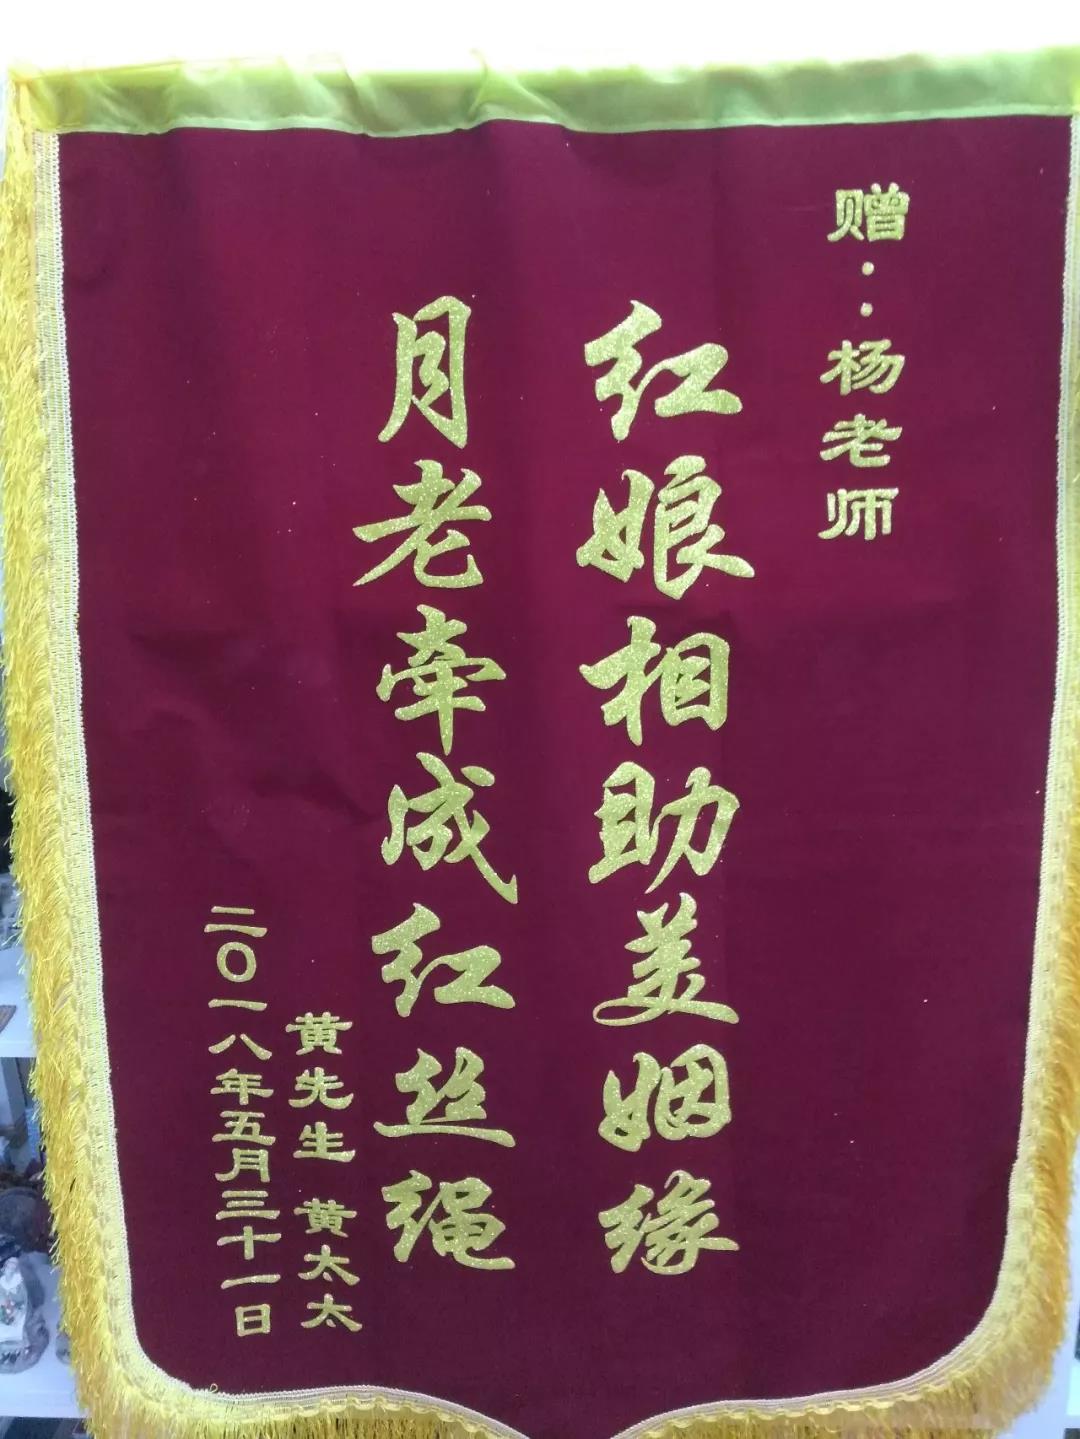 赠：杨老师
红娘相助美姻缘
月老牵成红丝绳
黄先生 黄太太
二〇一八年五月三十一日